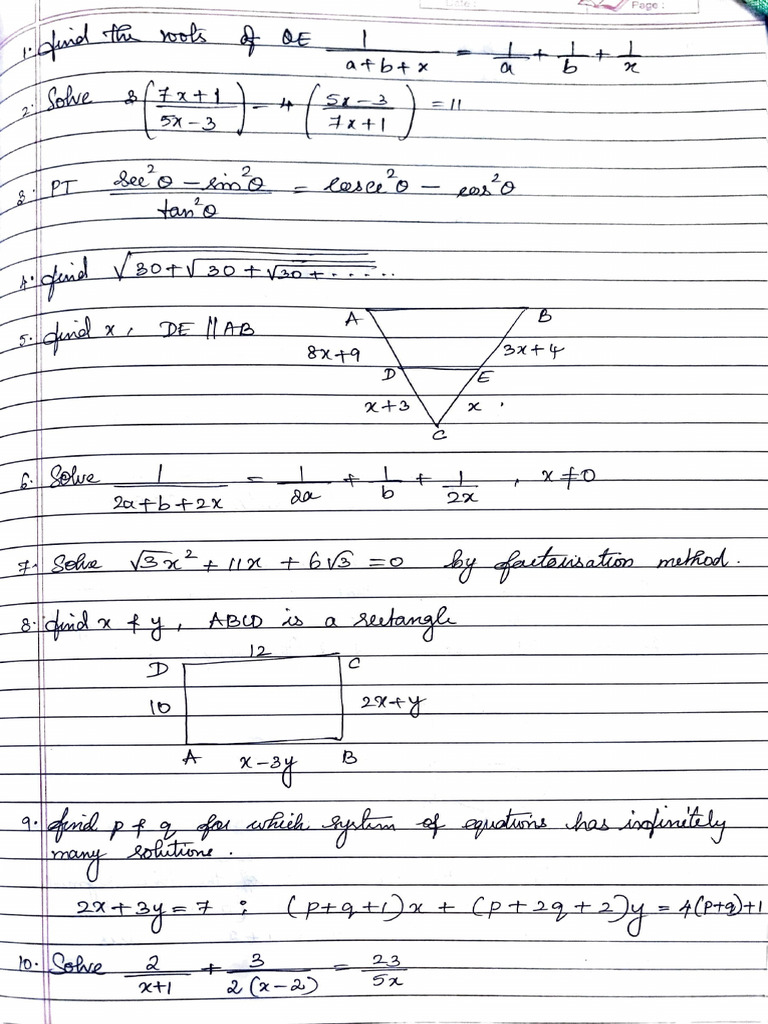 Date: Page:
1. find the roots of QE 1/(a+b+x) = 1/a + 1/b + 1/x
2. Solve 3((7x+1)/(5x-3)) - 4((5x-3)/(7x+1)) = 11
3. PT (sec²θ - sin²θ)/tan²θ = cosec²θ - cos²θ
4. find √30+√30+√30+......
5. find x, DE || AB
A B
8x+9 3x+4
D E
x+3 x.
C
6. Solve 1/(2a+b+2x) = 1/2a + 1/b + 1/2x, x≠0
7. Solve √3x² + 11x + 6√3 = 0 by factorisation method.
8. find x & y, ABCD is a rectangle
12
D C
10 2x+y
A x-3y B
9. find p & q for which system of equations has infinitely
many solutions.
2x+3y=7 ; (p+q+1)x + (p+2q+2)y = 4(p+q)+1
10. Solve 2/(x+1) + 3/(2(x-2)) = 23/5x